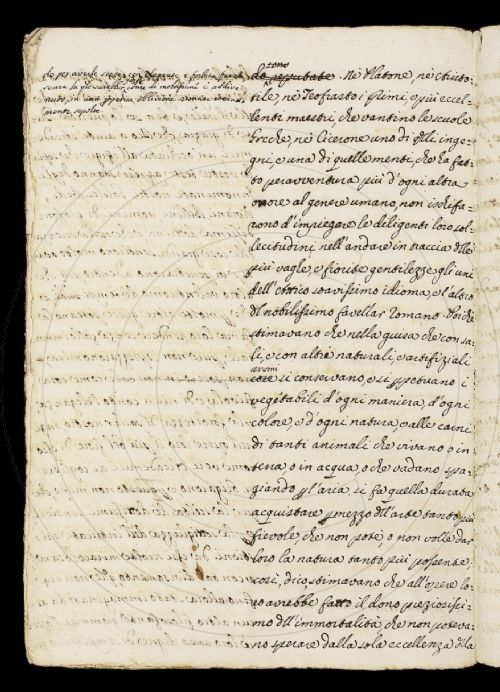 do per averle stese con elegante e polita
senza la più
nuto, in una oblivione
mente sepolte
tono
do reputate. Nè Platone, nè Aristo=
tile, nè Teofrasto i primi, e più eccel=
lenti maestri, che vantino le scuole
Greche, nè Cicerone uno di qlli inge=
gni, e una di quelle menti, che ha fat=
to peravventura più d'ogni altra
onore al genere umano, non ischifa=
rono d'impiegare le diligenti loro sol=
lecitudini nell'andare in traccia delle
più vaghe, e fiorite gentilezze gli uni
dell'Attico soavissimo idioma, e l'altro
dl nobilissimo favellar Romano. Poichè
stimavano che nella guisa che con sa=
li, e con altri naturali e artifiziali
aromi
si conservano, e si i
vegetabili d'ogni maniera, d'ogni
colore, e d'ogni natura, e alle carni
di tanti animali che vivano o in
terra, o in acqua, o che vadano spa=
ziando p l'aria, si fa quella durata
acquistare p mezzo dll'arte tanto più
fievole, che non potè, o non volle dar
loro la natura tanto più possente,
così, dico, stimavano che all'opere lo=
ro avrebbe fatto il dono preziosissi=
mo dll'immortalità, che non poteva=
no sperare dalla sola eccellenza dlla